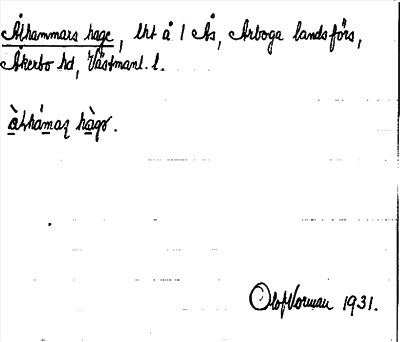 Ålhammars hage, lht å 1 Ås, Arboga landsförs,
Åkerbo hd, Västmanl. l.
àlhámaʀ hàgɤ.
Olof Norman 1931.